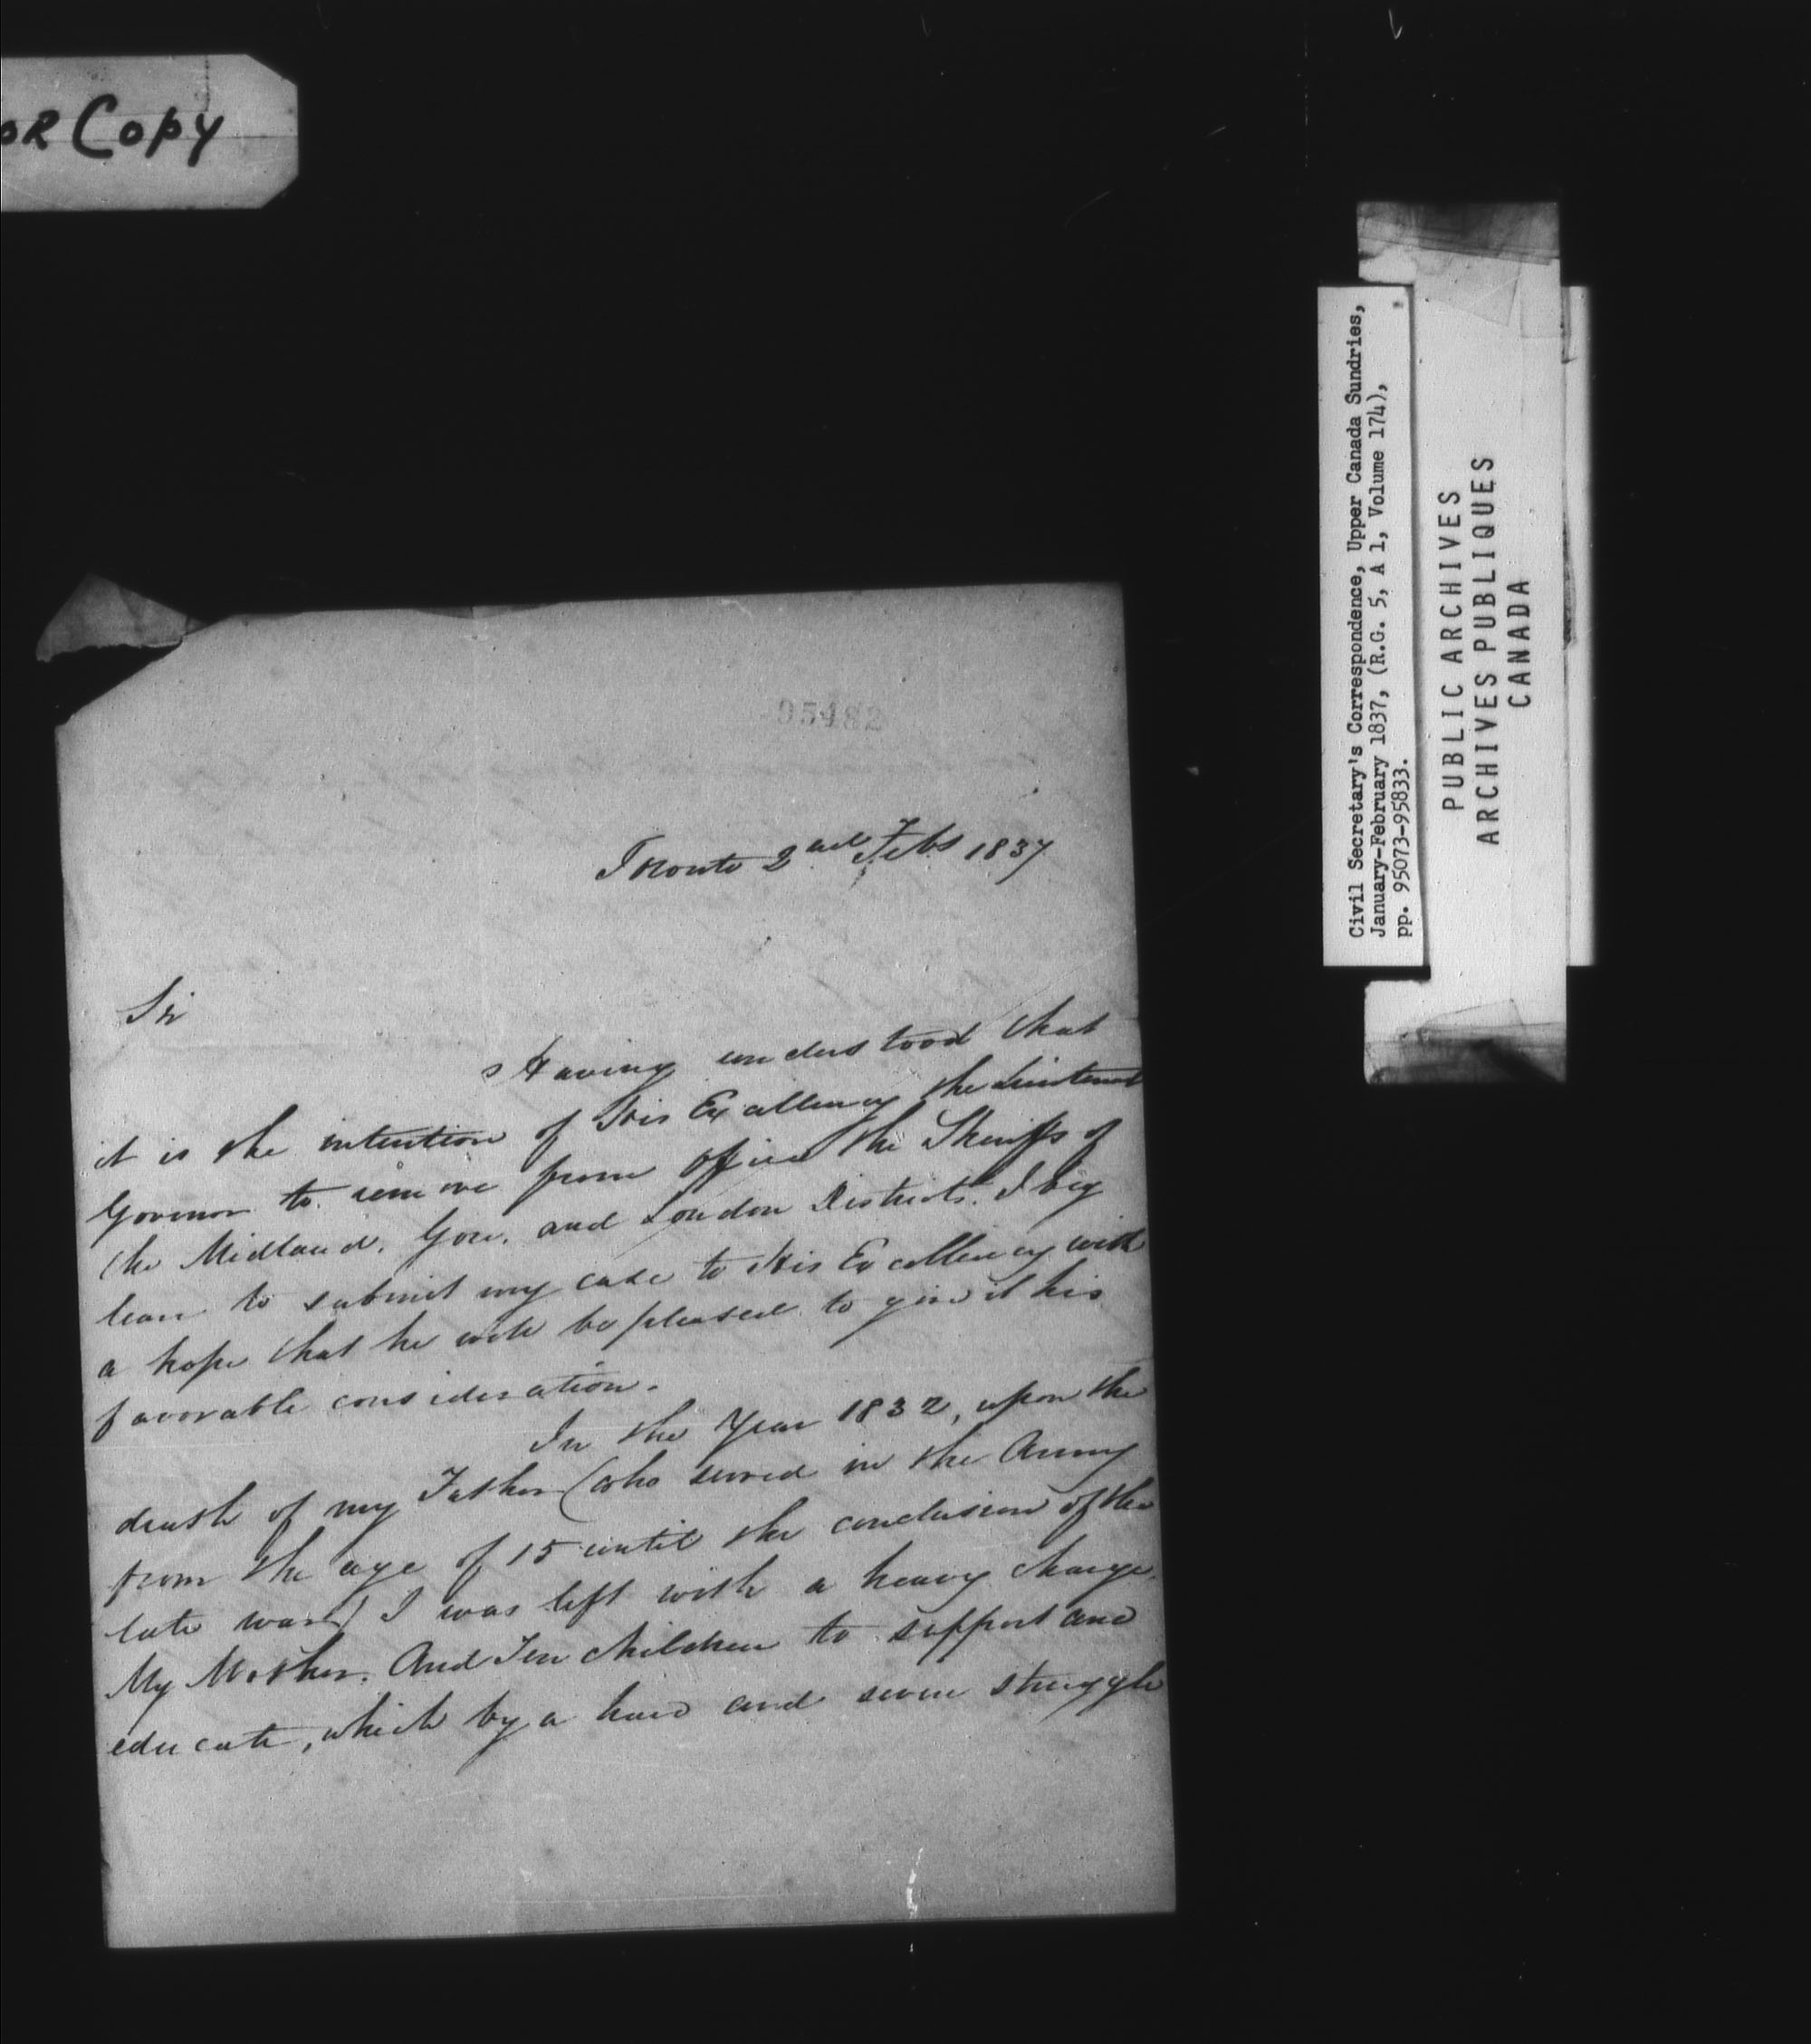 OR Copy
95482
Toronto 2nd Feby 1837
Sir
Having understood that
it is the intention of His Excellency the Lieutenant
Govenor to remove from office the Sheriffs of
the Midland, Gore, and London Districts. I beg
leave to submit my case to His Excellency with
a hope that he will be pleased to give it his
favorable consideration.
In the Year 1832, upon the
death of my Father (who served in the Army
from the age of 15 until the conclusion of the
late war) I was left with a heavy charge.
My Mother. And Ten children to support and
educate, which by a hard and severe struggle
Civil Secretary's Correspondence, Upper Canada Sundries,
January-February 1837, (R.G. 5, A 1, Volume 174),
pp. 95073-95833.
PUBLIC ARCHIVES
ARCHIVES PUBLIQUES
CANADA